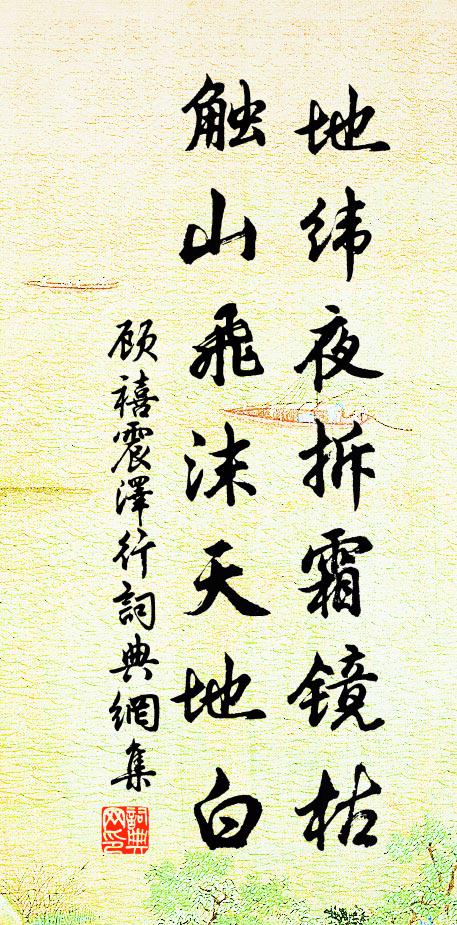 地纬夜拆霜镜枯
触山飞沫天地白
顾禧震澤行詞典網集
詞典
网印